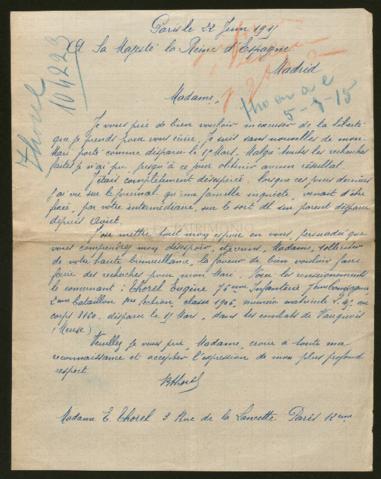 Paris le 22 Juin 191
A Sa Majesté la Reine d'Espagne
Madrid
Thorel
104223
thorel
5-7-15
Madame,
Je vous prie de bien vouloir m'excuser de la liberté
que je prends pour vous écrire, je suis sans nouvelles de mon
Mari porté comme disparu le 1er Mars. Malgré toutes les recherches
faites je n'ai pu jusqu'à ce jour obtenir aucun résultat.
J'étais complètement désespérée, lorsque ces jours derniers
j'ai vu sur le journal qu'une famille inquiète, venait d'être
fixée, par votre intermédiaire, sur le sort d'un parent disparu
depuis Août.
mettre tout mon espoir en vous, persuadée que
vous comprendrez mon désespoir, et venons, Madame, solliciter
de votre haute bienveillance, la faveur de bien vouloir faire
faire des recherches pour mon Mari. Voici les renseignements
le concernant: Thorel Eugène 76ème Infanterie
2ème bataillon section, classe 1906, numéro matricule
au corps disparu le 1er Mars, dans les combats de Vauquois
(Meuse)
Veuillez je vous prie, Madame, croire à toute ma
reconnaissance et accepter l'expression de mon plus profond
respect.
EThorel
Madame E. Thorel 3 Rue de la Lancette Paris 12ème